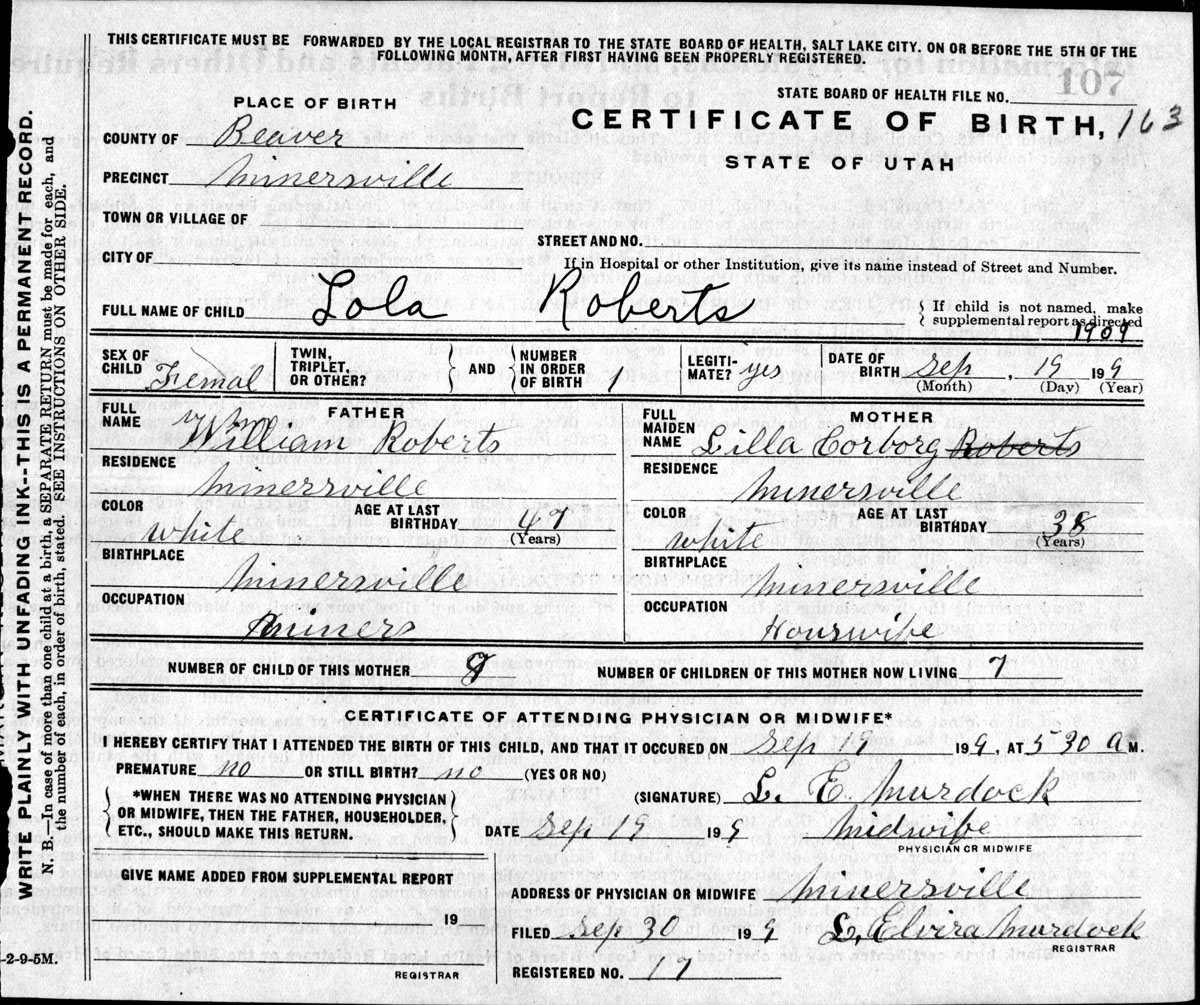 THIS CERTIFICATE MUST BE FORWARDED BY THE LOCAL REGISTRAR TO THE STATE BOARD OF HEALTH, SALT LAKE CITY. ON OR BEFORE THE 5TH OF THE
FOLLOWING MONTH, AFTER FIRST HAVING BEEN PROPERLY REGISTERED.
107
STATE BOARD OF HEALTH FILE NO.
PLACE OF BIRTH
CERTIFICATE OF BIRTH, 163
COUNTY OF Beaver
STATE OF UTAH
PRECINCT Minersville
TOWN OR VILLAGE OF
STREET AND NO.
CITY OF
If in Hospital or other Institution, give its name instead of Street and Number.
FULL NAME OF CHILD Lola Roberts
If child is not named, make
supplemental report as directed
1909
SEX OF CHILD Femal
TWIN, TRIPLET, OR OTHER?
AND
NUMBER IN ORDER OF BIRTH 1
LEGITI-MATE? yes
DATE OF BIRTH Sep, 19 199
(Month) (Day) (Year)
FATHER
FULL NAME Wm William Roberts
RESIDENCE Minersville
COLOR White
AGE AT LAST BIRTHDAY 47
(Years)
BIRTHPLACE Minersville
OCCUPATION Miners
MOTHER
FULL MAIDEN NAME Lilla Corborg Roberts
RESIDENCE Minersville
COLOR White
AGE AT LAST BIRTHDAY 38
(Years)
BIRTHPLACE Minersville
OCCUPATION Houswife
NUMBER OF CHILD OF THIS MOTHER
NUMBER OF CHILDREN OF THIS MOTHER NOW LIVING 7
CERTIFICATE OF ATTENDING PHYSICIAN OR MIDWIFE*
I HEREBY CERTIFY THAT I ATTENDED THE BIRTH OF THIS CHILD, AND THAT IT OCCURED ON Sep 199, AT 5 30 A M.
PREMATURE no OR STILL BIRTH? no (YES OR NO)
*WHEN THERE WAS NO ATTENDING PHYSICIAN
OR MIDWIFE, THEN THE FATHER, HOUSEHOLDER,
ETC., SHOULD MAKE THIS RETURN.
(SIGNATURE) L. E. Murdock
DATE Sep 19 199 Midwife
PHYSICIAN OR MIDWIFE
GIVE NAME ADDED FROM SUPPLEMENTAL REPORT
19
REGISTRAR
ADDRESS OF PHYSICIAN OR MIDWIFE Minersville
FILED Sep 30 199 L, Elvira Murdock
REGISTRAR
REGISTERED NO. 17
WRITE PLAINLY WITH UNFADING INK--THIS IS A PERMANENT RECORD.
N. B.—In case of more than one child at a birth, a SEPARATE RETURN must be made for each, and
the number of each, in order of birth, stated. SEE INSTRUCTIONS ON OTHER SIDE.
-2-9-5M.